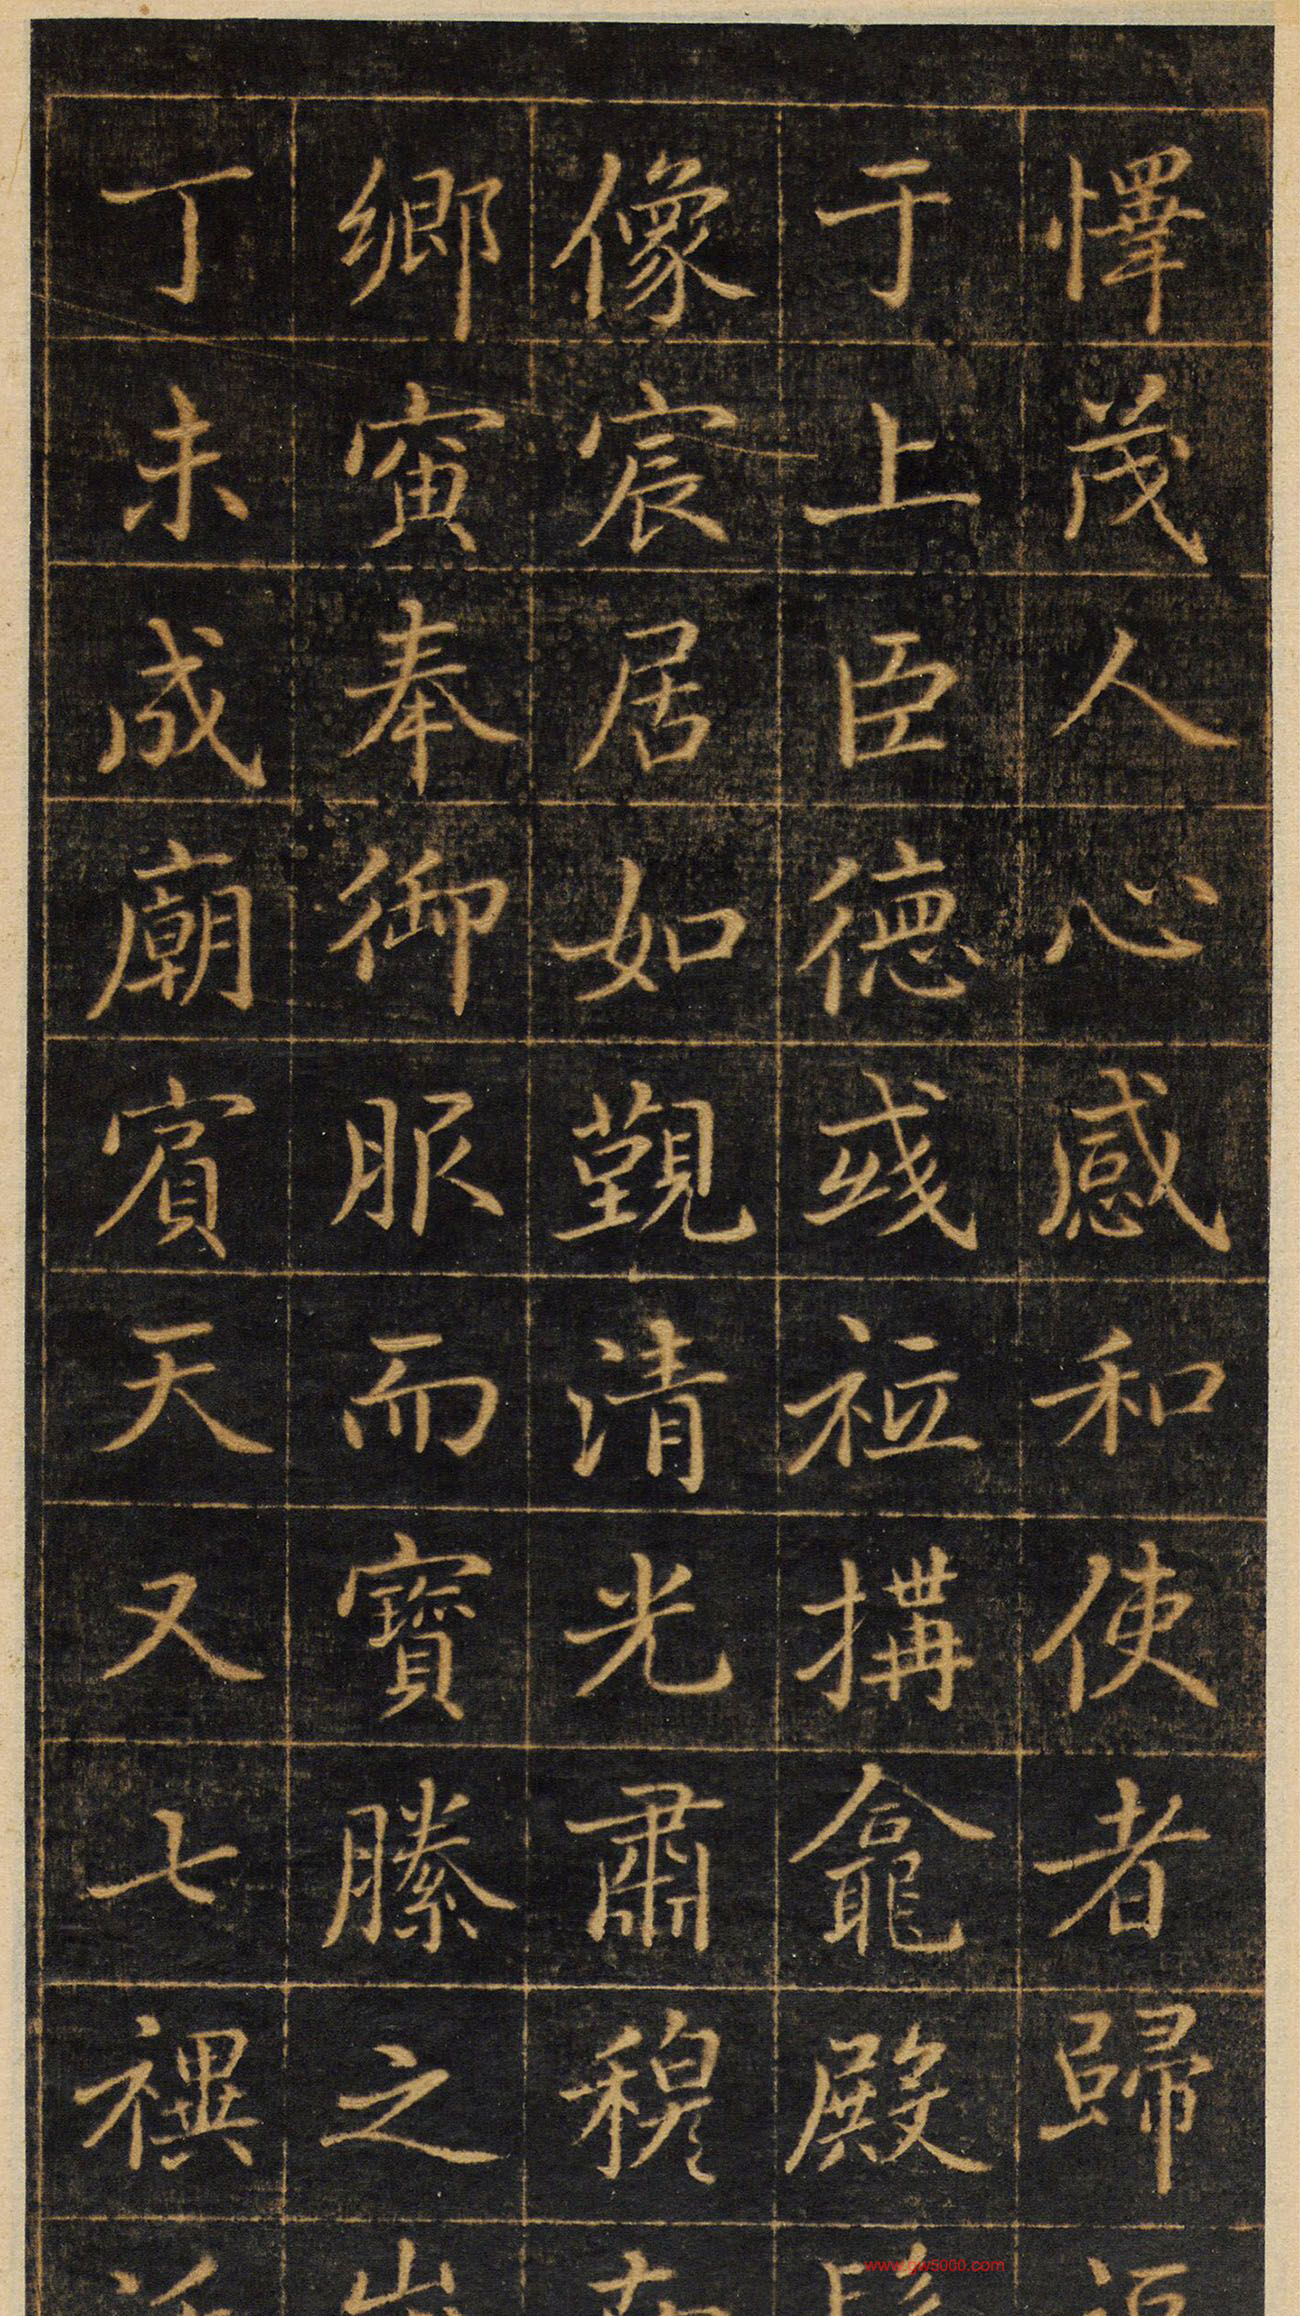 懌茂人心感和使者歸
于上臣德彧祉搆龕殿
像宸居如覲清光肅穆
鄉寅奉御服而寶縢之
丁未成廟賓天又七禩
www.gw5000.com